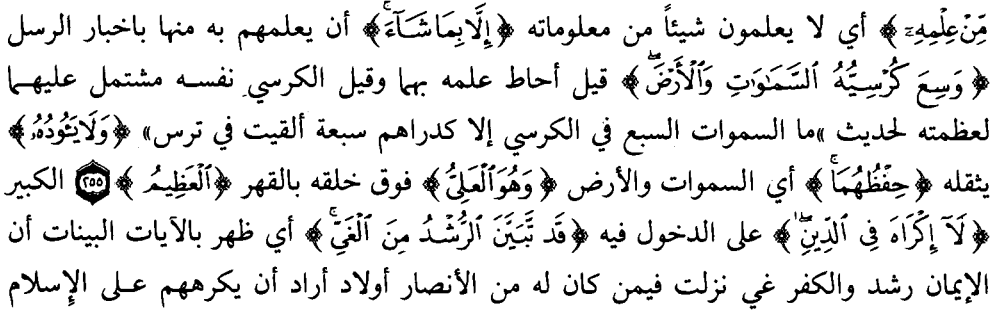 مِّنْ عِلْمِهِۦٓ ﴾ أي لا يعلمون شيئاً من معلوماته ﴿ إِلَّا بِمَا شَآءَ ۚ ﴾ أن يعلمهم به منها باخبار الرسل
﴿ وَسِعَ كُرْسِيُّهُ ٱلسَّمَـٰوَٰتِ وَٱلْأَرْضَ ۖ ﴾ قيل أحاط علمه بهما وقيل الكرسي نفسه مشتمل عليهما
لعظمته لحديث «ما السموات السبع في الكرسي إلا كدراهم سبعة ألقيت في ترس» ﴿ وَلَا يَـُٔودُهُۥ ﴾
يثقله ﴿ حِفْظُهُمَا ۚ ﴾ أي السموات والأرض ﴿ وَهُوَ ٱلْعَلِىُّ ﴾ فوق خلقه بالقهر ﴿ ٱلْعَظِيمُ ﴾ ٢٥٥ الكبير
﴿ لَآ إِكْرَاهَ فِى ٱلدِّينِ ۖ ﴾ على الدخول فيه ﴿ قَد تَّبَيَّنَ ٱلرُّشْدُ مِنَ ٱلْغَىِّ ۚ ﴾ أي ظهر بالآيات البينات أن
الإيمان رشد والكفر غي نزلت فيمن كان له من الأنصار أولاد أراد أن يكرههم على الإسلام